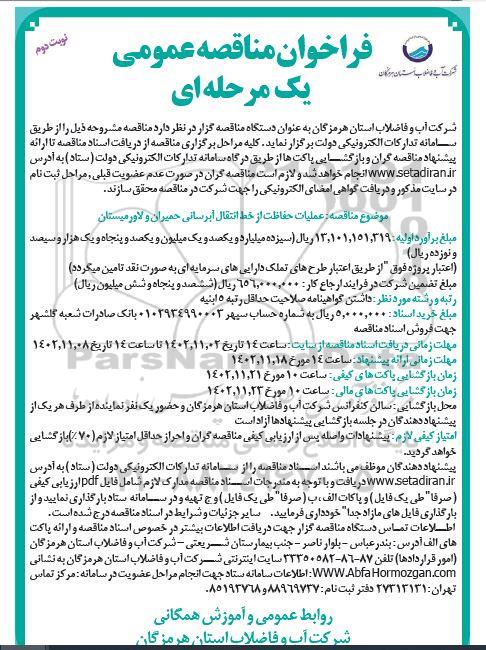 نوبت دوم
فراخوان مناقصه عمومی
یک مرحله ای
شرکت آب و فاضلاب استان هرمزگان
شرکت آب و فاضلاب استان هرمزگان به عنوان دستگاه مناقصه گزار در نظر دارد مناقصه مشروحه ذیل را از طریق
سامانه تدارکات الکترونیکی دولت برگزار نماید. کلیه مراحل برگزاری مناقصه از دریافت اسناد مناقصه تا ارائه
پیشنهاد مناقصه گران و بازگشایی پاکت ها از طریق درگاه سامانه تدارکات الکترونیکی دولت (ستاد) به آدرس
www.setadiran.ir انجام خواهد شد و لازم است مناقصه گران در صورت عدم عضویت قبلی، مراحل ثبت نام
در سایت مذکور و دریافت گواهی امضای الکترونیکی را جهت شرکت در مناقصه محقق سازند.
موضوع مناقصه: عملیات حفاظت از خط انتقال آبرسانی حمیران و لاورمیستان
مبلغ برآورد اولیه: ۱۳,۱۰۱,۱۵۱,۳۱۹ ریال (سیزده میلیارد و یکصد و یک میلیون و یکصد و پنجاه و یک هزار و سیصد
و نوزده ریال)
(اعتبار پروژه فوق "از طریق اعتبار طرح های تملک دارایی های سرمایه ای به صورت نقد تامین میگردد)
مبلغ تضمین شرکت در فرایند ارجاع کار: ۶۵۶,۰۰۰,۰۰۰ ریال (ششصد و پنجاه و شش میلیون ریال)
رتبه و رشته مورد نظر: داشتن گواهینامه صلاحیت حداقل رتبه ۵ ابنیه
مبلغ خرید اسناد: ۵,۰۰۰,۰۰۰ ریال به شماره حساب سپهر ۰۱۰۲۹۳۴۹۹۰۰۰۳ بانک صادرات شعبه گلشهر
جهت فروش اسناد مناقصه
مهلت زمانی دریافت اسناد مناقصه از سایت: ساعت ۱۴ تاریخ ۱۴۰۲,۱۱,۰۲ تا ساعت ۱۴ تاریخ ۱۴۰۲,۱۱,۰۸
مهلت زمانی ارائه پیشنهاد: ساعت ۱۴ مورخ ۱۴۰۲,۱۱,۱۸
زمان بازگشایی پاکت های کیفی: ساعت ۱۰ مورخ ۱۴۰۲,۱۱,۲۱
زمان بازگشایی پاکت های مالی: ساعت ۱۰ مورخ ۱۴۰۲,۱۱,۲۳
محل بازگشایی: سالن کنفرانس شرکت آب و فاضلاب استان هرمزگان و حضور یک نفر نماینده از طرف هر یک از
پیشنهاد دهندگان در جلسه بازگشایی پیشنهادها آزاد است
امتیاز کیفی لازم: پیشنهادات واصله پس از ارزیابی کیفی مناقصه گران و احراز حداقل امتیاز لازم (۷۰٪) بازگشایی
خواهد گردید.
پیشنهاد دهندگان موظف می باشند اسناد مناقصه را از سامانه تدارکات الکترونیکی دولت (ستاد) به آدرس
www.setadiran.ir دریافت و با توجه به مندرجات اسناد مناقصه مدارک لازم شامل فایل pdf ارزیابی کیفی
(صرفا" طی یک فایل) و پاکات الف، ب (صرفا" طی یک فایل) و ج تهیه و در سامانه ستاد بارگذاری نمایند و از
بارگذاری فایل های مازاد جدا" خودداری فرمایید. سایر جزئیات و شرایط در اسناد مناقصه درج شده است.
اطلاعات تماس دستگاه مناقصه گزار جهت دریافت اطلاعات بیشتر در خصوص اسناد مناقصه و ارائه پاکت
های الف آدرس: بندرعباس - بلوار ناصر - جنب بیمارستان شریعتی - شرکت آب و فاضلاب استان هرمزگان
(امور قراردادها) تلفن ۸۷-۸۶-۳۳۳۵۰۵۸۲ سایت اینترنتی شرکت آب و فاضلاب استان هرمزگان به نشانی
WWW.AbfaHormozgan.com: اطلاعات سامانه ستاد جهت انجام مراحل عضویت در سامانه: مرکز تماس
تهران: ۲۷۳۱۳۱۳۱ دفتر ثبت نام: ۸۸۹۶۹۷۳۷ و ۸۵۱۹۳۷۶۸.
روابط عمومی و آموزش همگانی
شرکت آب و فاضلاب استان هرمزگان